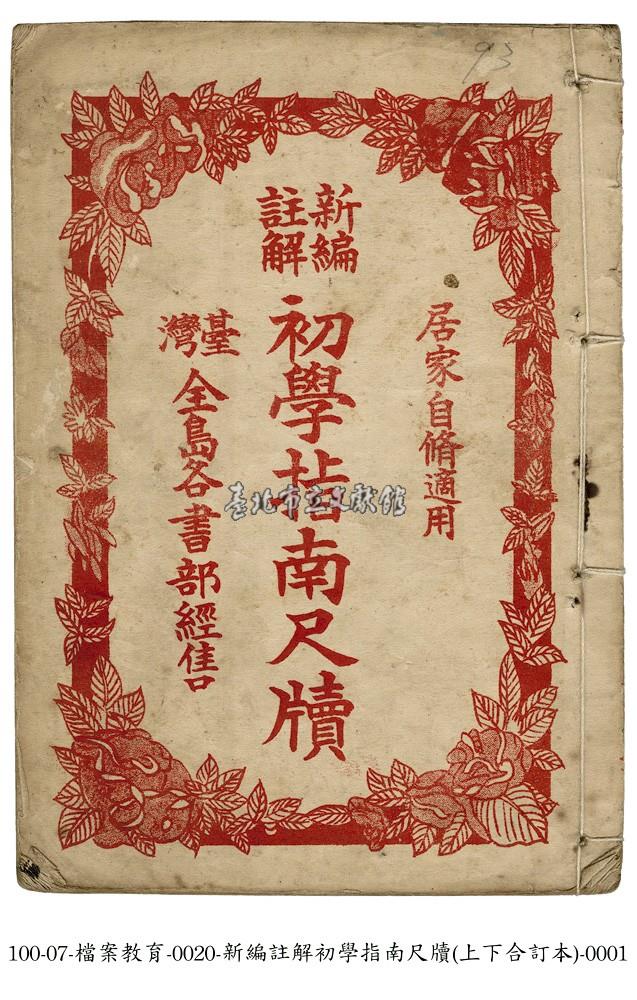 93
新編
註解
居家自脩適用
初學指南尺牘
臺灣
全島各書部經售
臺北市立文獻館
100-07-檔案教育-0020-新編註解初學指南尺牘(上下合訂本)-0001